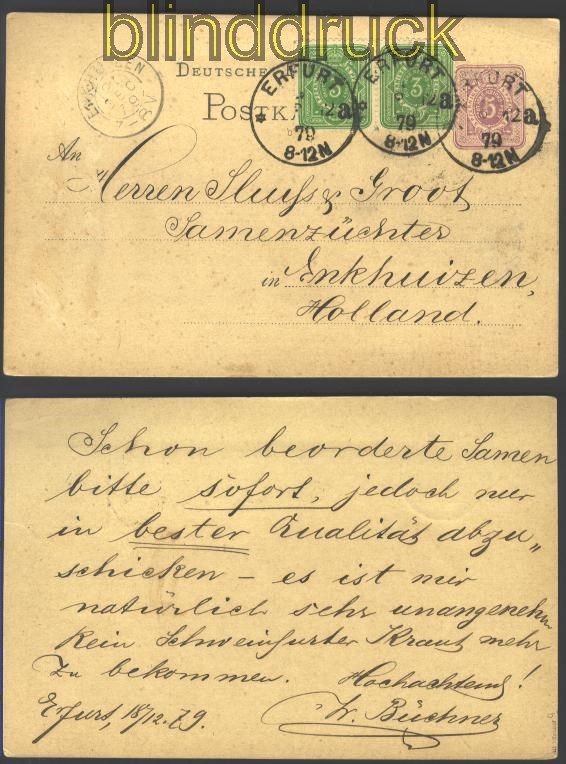 blinddruck
DEUTSCHE
POSTKA
ERFURT
12 a.
79
8-12N
ERFURT
12 a.
79
8-12N
ERFURT
12 a.
79
8-12N
3
3
5
An
Herren Sluys & Groot
Samenzüchter
in Enkhuizen,
Holland.
Schon beorderte Samen
bitte sofort, jedoch nur
in bester Qualität abzu„
schicken – es ist mir
natürlich sehr unangenehm
kein Schweinfurter Kraut mehr
zu bekommen. Hochachtend!
Erfurt, 18/12. 79. Fr. Büchner